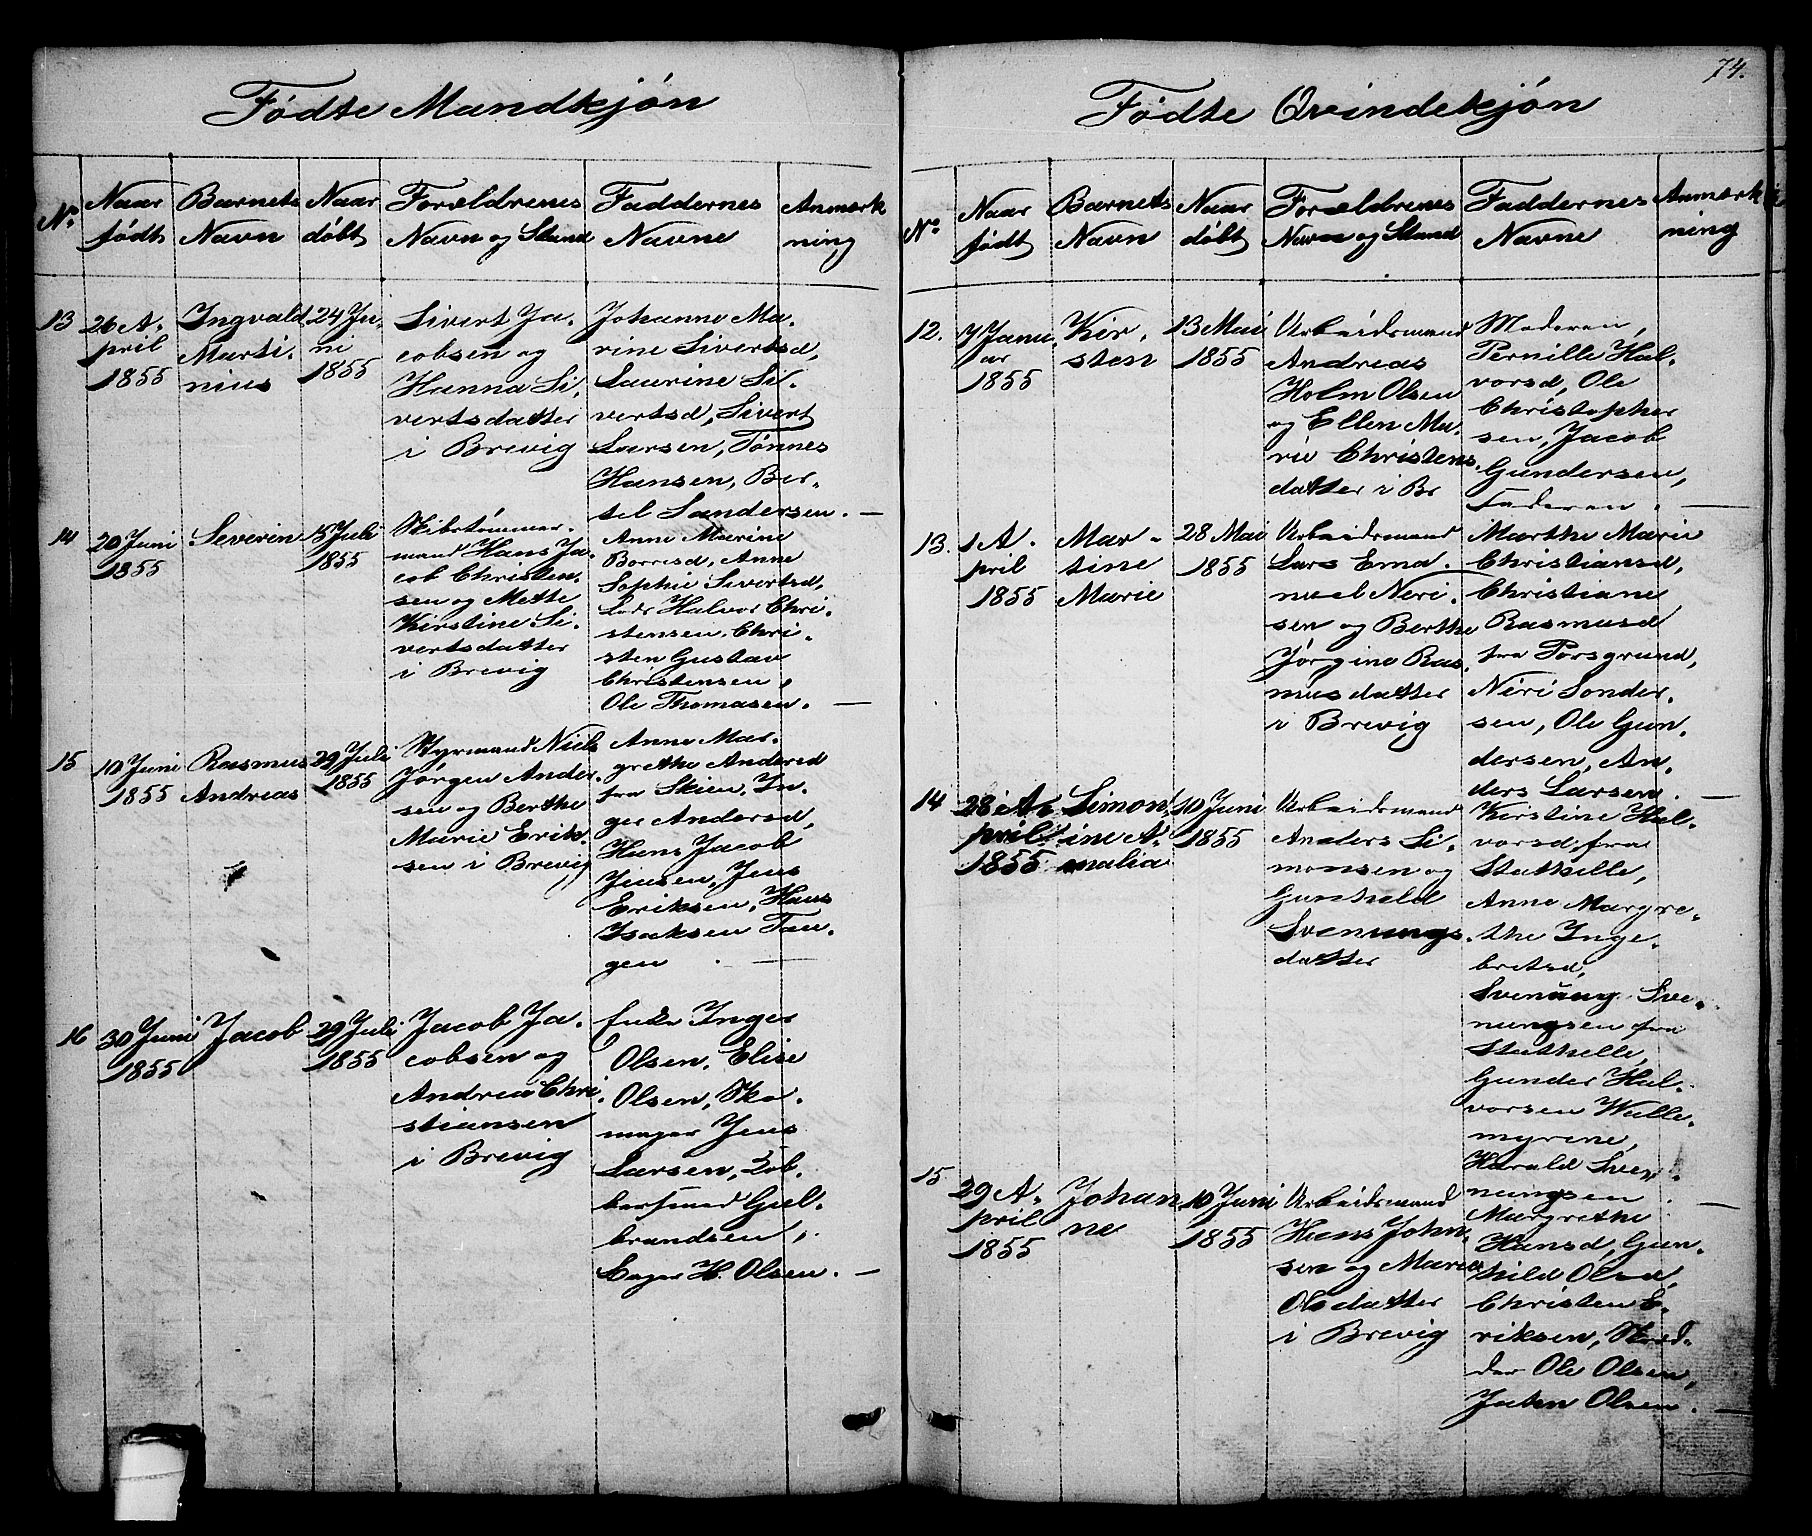 Fødte Mandkjøn
No
Naar
født
Barnets
Navn
Naar
døbt
Forældrenes
Navn og Stand
Faddernes
Navne
Anmærk
ning
13
26 A-
pril
1855
Ingvald
Marti-
nius
24 Ju-
ni
1855
Sivert Ja-
cobsen og
Hanna Si-
vertsdatter
i Brevig
Johanne Ma-
rine Sivertsd,
Laurine Si-
vertsd, Sivert
Larsen, Tønnes
Hansen, Ber-
tel Sandersen. —
14
20 Juni
1855
Severin
15 Juli
1855
Skibstømmer-
mand Hans Ja-
cob Christen-
sen og Mette
Kirstine Si-
vertsdatter
i Brevig
Anne Marine
Borresd, Anne
Sophie Sivertsd,
Lods Halvor Chri-
stensen, Chri-
sten Gustav
Christensen,
Ole Thomasen. —
15
10 Juni
1855
Rasmus
Andreas
29 Juli
1855
Styrmand Niels
Jørgen Ander-
sen og Berthe
Marie Erik-
sen i Brevig
Anne Mar-
grethe Andersd
fra Skien, In-
ger Andersd,
Hans Jacob
Jensen, Jens
Eriksen, Hans
Isaksen Tan-
gen . —
16
30 Juni
1855
Jacob
29 Juli
1855
Jacob Ja-
cobsen og
Andrea Chri-
stiansen
i Brevig
Enke Inger
Olsen, Elise
Olsen, Sko-
mager Jens
Larsen,
Gul-
brandsen,
H. Olsen. —
74.
Fødte Qvindekjøn
No
Naar
født
Barnets
Navn
Naar
døbt
Forældrenes
Navn og Stand
Faddernes
Navne
Anmærk
ning
12.
7 Janu-
ar
1855
Kir-
sten
13 Mai
1855
Arbeidsmand
Andreas
Holm Olsen
og Ellen Ma-
rie Christens-
datter i Br
Moderen,
Pernille Hal-
vorsd, Ole
Christopher
sen, Jacob
Gundersen,
Faderen. —
13.
1 A-
pril
1855
Mar-
tine
Marie
28 Mai
1855
Arbeidsmand
Lars Ema-
nuel Neri-
sen og Berthe
Jørgine Ras-
musdatter
i Brevig
Marthe Marie
Christiansd,
Christiane
Rasmusd
fra Porsgrund,
Neri Sonder-
sen, Ole Gun-
dersen, An-
ders Larsen. —
14
28 A-
pril
1855
Simon-
ine A-
malia
10 Juni
1855
Arbeidsmand
Anders Si-
monsen og
Gunhild
Svenungs-
datter
Kirstine Hal-
vorsd, fra
Stathelle,
Anne Margre-
the Inge-
bretsd,
Svenung Sve-
nungsen fra
Stathelle,
Gunder Hal-
vorsen Walle-
myrene,
Harald Sven-
nungsen . —
15
29 A-
pril
1855
Johan-
ne
10 Juni
1855
Arbeidsmand
Hans John-
sen og Maren
Olsdatter
i Brevig
Margrethe
Hansd, Gun-
hild Olsd,
Christen E-
riksen, Skred-
der Ole Olsen,
John Olsen. —